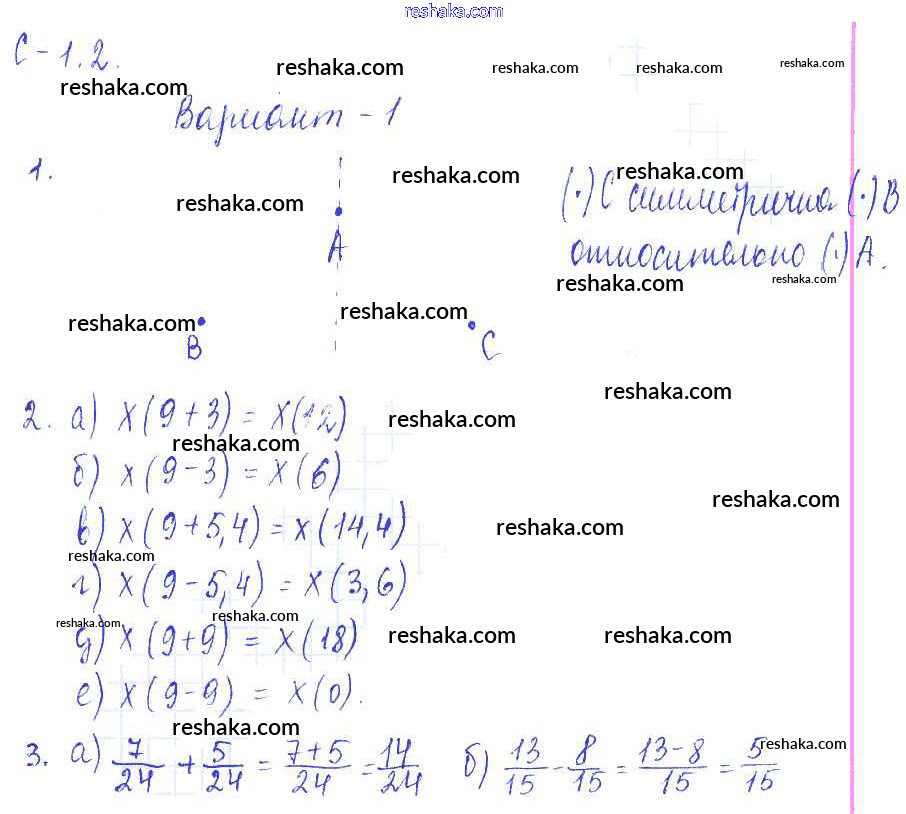 reshaka.com
С-1.2.
reshaka.com reshaka.com reshaka.com reshaka.com
reshaka.com
Вариант-1
1.
reshaka.com reshaka.com
reshaka.com
(·)С симметрична (·)В
А
относительно (·)А.
reshaka.com reshaka.com
reshaka.com reshaka.com
В С
reshaka.com
2. а) х(9+3)=х(12)
reshaka.com
reshaka.com
б) х(9-3)=х(6)
reshaka.com
в) х(9+5,4)=х(14,4)
reshaka.com
reshaka.com
г) х(9-5,4)=х(3,6)
reshaka.com reshaka.com
д) х(9+9)=х(18)
reshaka.com reshaka.com
е) х(9-9)=х(0).
reshaka.com
reshaka.com
3. а) 7/24 + 5/24 = 7+5/24 = 14/24 б) 13/15 - 8/15 = 13-8/15 = 5/15